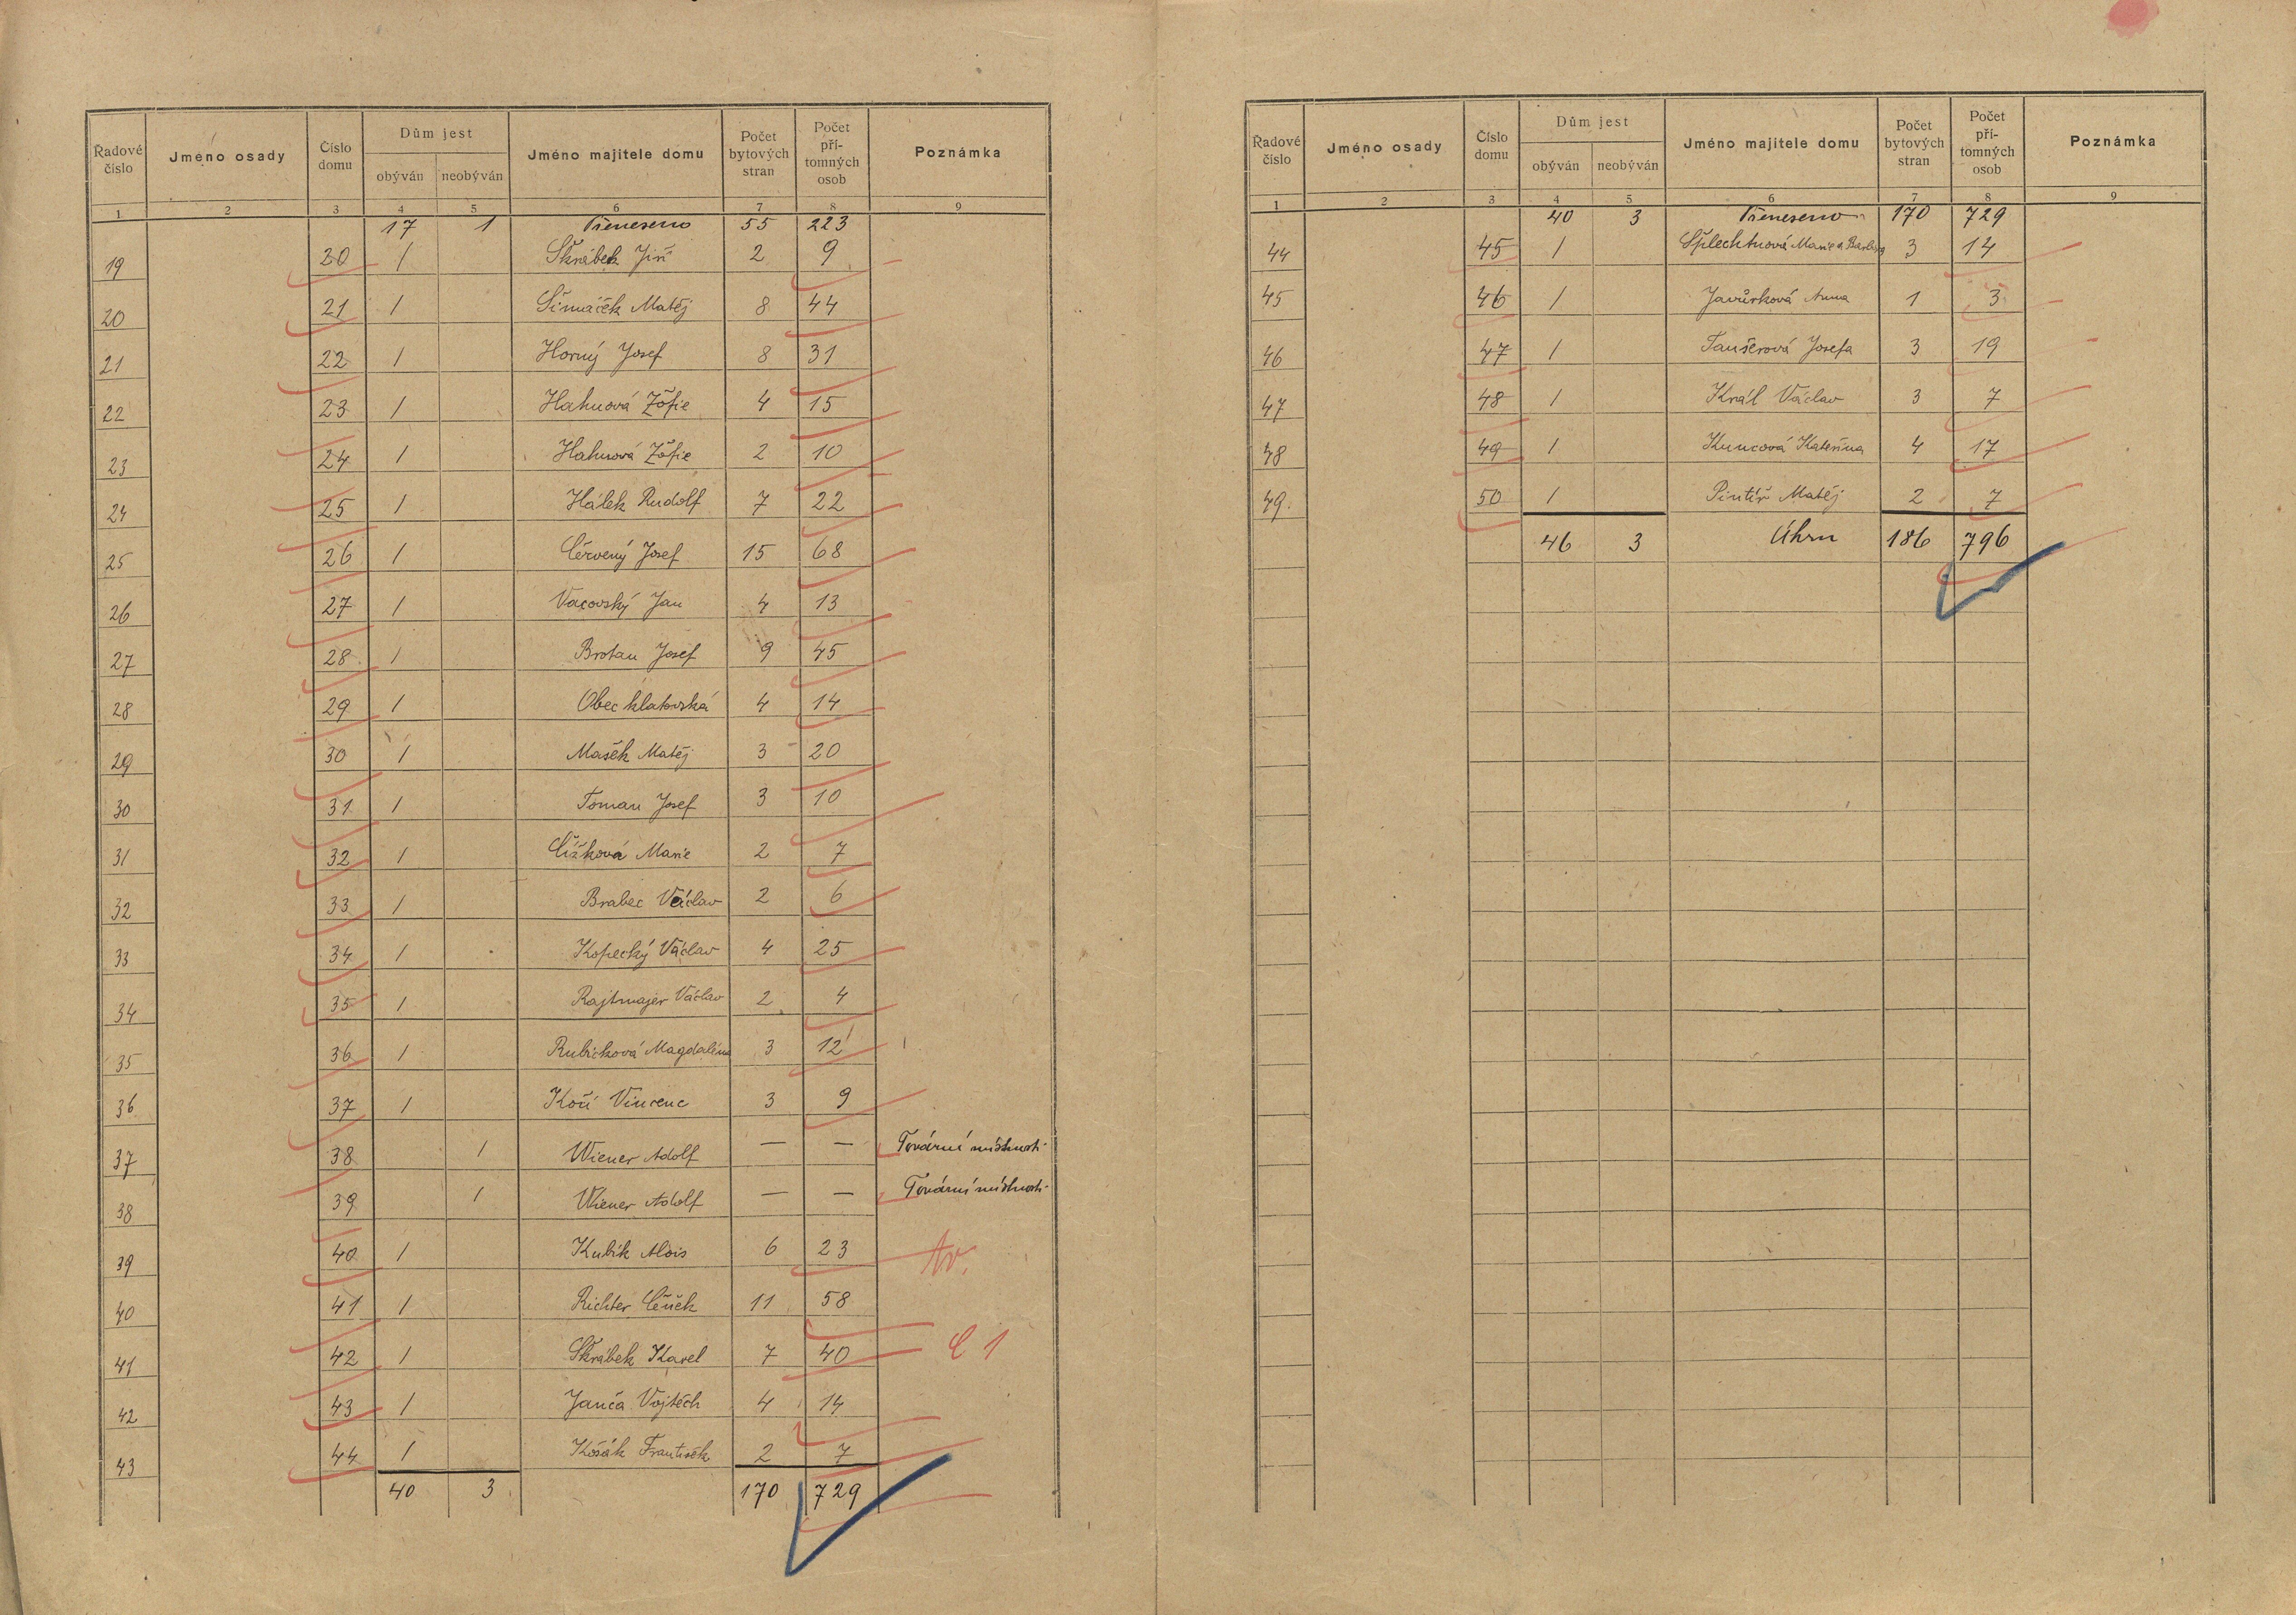 Řadové číslo | Jméno osady | Číslo domu | Dům jest | Jméno majitele domu | Počet bytových stran | Počet pří-tomných osob | Poznámka
obýván | neobýván
1 | 2 | 3 | 4 | 5 | 6 | 7 | 8 | 9
17 | 1 | Přeneseno | 55 | 223
19 | 20 | 1 | Škrábek Jiří | 2 | 9
20 | 21 | 1 | Šimáček Matěj | 8 | 44
21 | 22 | 1 | Horný Josef | 8 | 31
22 | 23 | 1 | Hahnová Žofie | 4 | 15
23 | 24 | 1 | Hahnová Žofie | 2 | 10
24 | 25 | 1 | Hálek Rudolf | 7 | 22
25 | 26 | 1 | Červený Josef | 15 | 68
26 | 27 | 1 | Vacovský Jan | 4 | 13
27 | 28 | 1 | Brotan Josef | 9 | 45
28 | 29 | 1 | Obec klatovská | 4 | 14
29 | 30 | 1 | Mašek Matěj | 3 | 20
30 | 31 | 1 | Toman Josef | 3 | 10
31 | 32 | 1 | Čížková Marie | 2 | 7
32 | 33 | 1 | Brabec Václav | 2 | 6
33 | 34 | 1 | Kopecký Václav | 4 | 25
34 | 35 | 1 | Rajtmajer Václav | 2 | 4
35 | 36 | 1 | Rubičková Magdaléna | 3 | 12
36 | 37 | 1 | Koří Vincenc | 3 | 9
37 | 38 | 1 | Wiener Adolf | — | — | Tovární místnosti
38 | 39 | 1 | Wiener Adolf | — | — | Tovární místnosti
39 | 40 | 1 | Kubík Alois | 6 | 23
40 | 41 | 1 | Richter Čeněk | 11 | 58
41 | 42 | 1 | Škrábek Karel | 7 | 40 | C 1
42 | 43 | 1 | Janča Vojtěch | 4 | 14
43 | 44 | 1 | Košák František | 2 | 7
40 | 3 | 170 | 729
Řadové číslo | Jméno osady | Číslo domu | Dům jest | Jméno majitele domu | Počet bytových stran | Počet pří-tomných osob | Poznámka
obýván | neobýván
1 | 2 | 3 | 4 | 5 | 6 | 7 | 8 | 9
40 | 3 | Přeneseno | 170 | 729
44 | 45 | 1 | Šplechtnová Marie a Barbora | 3 | 14
45 | 46 | 1 | Javůrková Anna | 1 | 3
46 | 47 | 1 | Taušerová Josefa | 3 | 19
47 | 48 | 1 | Král Václav | 3 | 7
48 | 49 | 1 | Kuncová Kateřina | 4 | 17
49 | 50 | 1 | Pintíř Matěj | 2 | 7
46 | 3 | Úhrn | 186 | 796